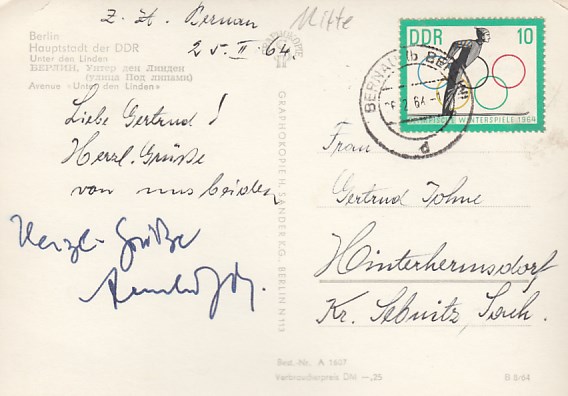 Z. Zt. Bernau
25. II. 64
Mitte
Berlin
Hauptstadt der DDR
Unter den Linden
БЕРЛИН, Унтер ден Линден
(улица Под липами)
Avenue «Unter den Linden»
Liebe Gertrud!
Herzl. Grüße
von uns beiden
Herzl. Grüße
GRAPHOKOPIE H. SANDER K.G. BERLIN N 113
DDR 10
OLYMPISCHE WINTERSPIELE 1964
BERNAU (b BERLIN)
d
Frau
Gertrud
Hinterhermsdorf
Kr. Sebnitz, Sach.
Best.-Nr. A 1607
Verbraucherpreis DM -,25
B 8/64